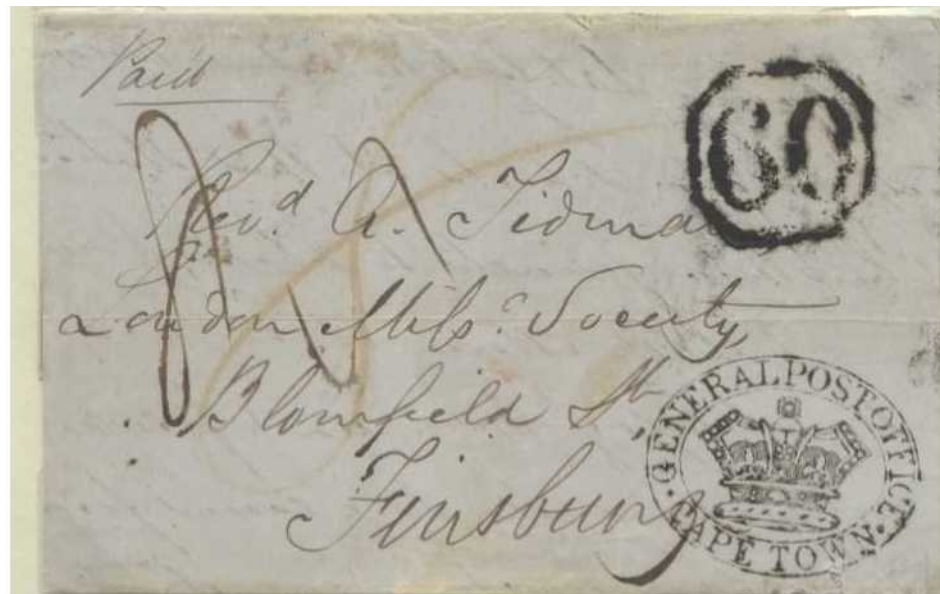 Paid
60
Revd. A. Tidman
London Missy. Society,
Blomfield St.
Finsbury
GENERAL POST OFFICE · CAPE TOWN ·